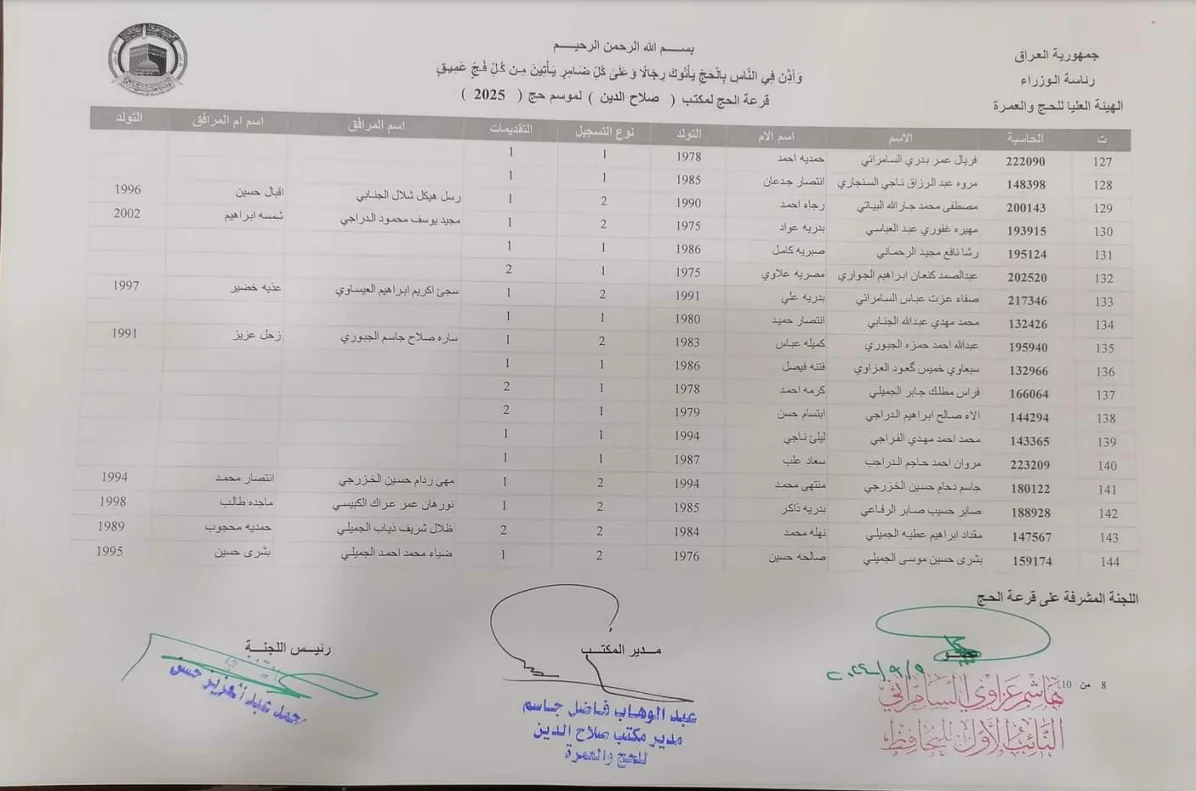 جمهورية العراق
رئاسة الوزراء
الهيئة العليا للحج والعمرة
بســـم الله الرحمن الرحيـــم
وَأَذِّن فِي النَّاسِ بِالْحَجِّ يَأْتُوكَ رِجَالًا وَعَلَىٰ كُلِّ ضَامِرٍ يَأْتِينَ مِن كُلِّ فَجٍّ عَمِيقٍ
قرعة الحج لمكتب ( صلاح الدين ) لموسم حج ( 2025 )
ت الحاسبة الاسم اسم الام التولد نوع التسجيل التقديمات اسم المرافق اسم ام المرافق التولد
127 222090 فريال عمر بدري السامرائي حمديه احمد 1978 1 1
128 148398 مروه عبد الرزاق ناجي السنجاري انتصار جدعان 1985 1 1
129 200143 مصطفى محمد جارالله البياتي رجاء احمد 1990 2 1 رسل هيكل شلال الجنابي اقبال حسين 1996
130 193915 مهيره غفوري عبد العباسي بدريه عواد 1975 2 1 مجيد يوسف محمود الدراجي شمسه ابراهيم 2002
131 195124 رشا نافع مجيد الرحماني صبريه كامل 1986 1 1
132 202520 عبدالصمد كنعان ابراهيم الجواري مصريه علاوي 1975 1 2
133 217346 صفاء عزت عباس السامرائي بدريه علي 1991 2 1 سجئ اكريم ابراهيم العيساوي عذيه خضير 1997
134 132426 محمد مهدي عبدالله الجنابي انتصار حميد 1980 1 1
135 195940 عبدالله احمد حمزه الجبوري كميله عباس 1983 2 1 ساره صلاح جاسم الجبوري زحل عزيز 1991
136 132966 سبعاوي خميس گعود العزاوي فتنه فيصل 1986 1 1
137 166064 فراس مطلك جابر الجميلي كرمه احمد 1978 1 2
138 144294 الاء صالح ابراهيم الدراجي ابتسام حسن 1979 1 2
139 143365 محمد احمد مهدي الفراجي ليلئ ناجي 1994 1 1
140 223209 مروان احمد حاجم الدراجب سعاد علب 1987 1 1
141 180122 جاسم دحام حسين الخزرجي منتهى محمد 1994 2 1 مهى ردام حسين الخزرجي انتصار محمد 1994
142 188928 صابر حسيب صابر الرفاعي بدريه ذاكر 1985 2 1 نورهان عمر عراك الكبيسي ماجده طالب 1998
143 147567 مقداد ابراهيم عطيه الجميلي نهله محمد 1984 2 2 ظلال شريف ذياب الجميلي حمديه محجوب 1989
144 159174 بشرى حسين موسى الجميلي صالحه حسين 1976 2 1 ضياء محمد احمد الجميلي بشرى حسين 1995
اللجنة المشرفة على قرعة الحج
مـــدير المكتب
رئيـــس اللجنـــة
٢٠٢٤/٩/٩
8 من 10
هاشم عزاوي السامرائي
النائب الأول للمحافظ
عبد الوهاب فاضل جاسم
مدير مكتب صلاح الدين
للحج والعمرة
عبد العزيز حسن